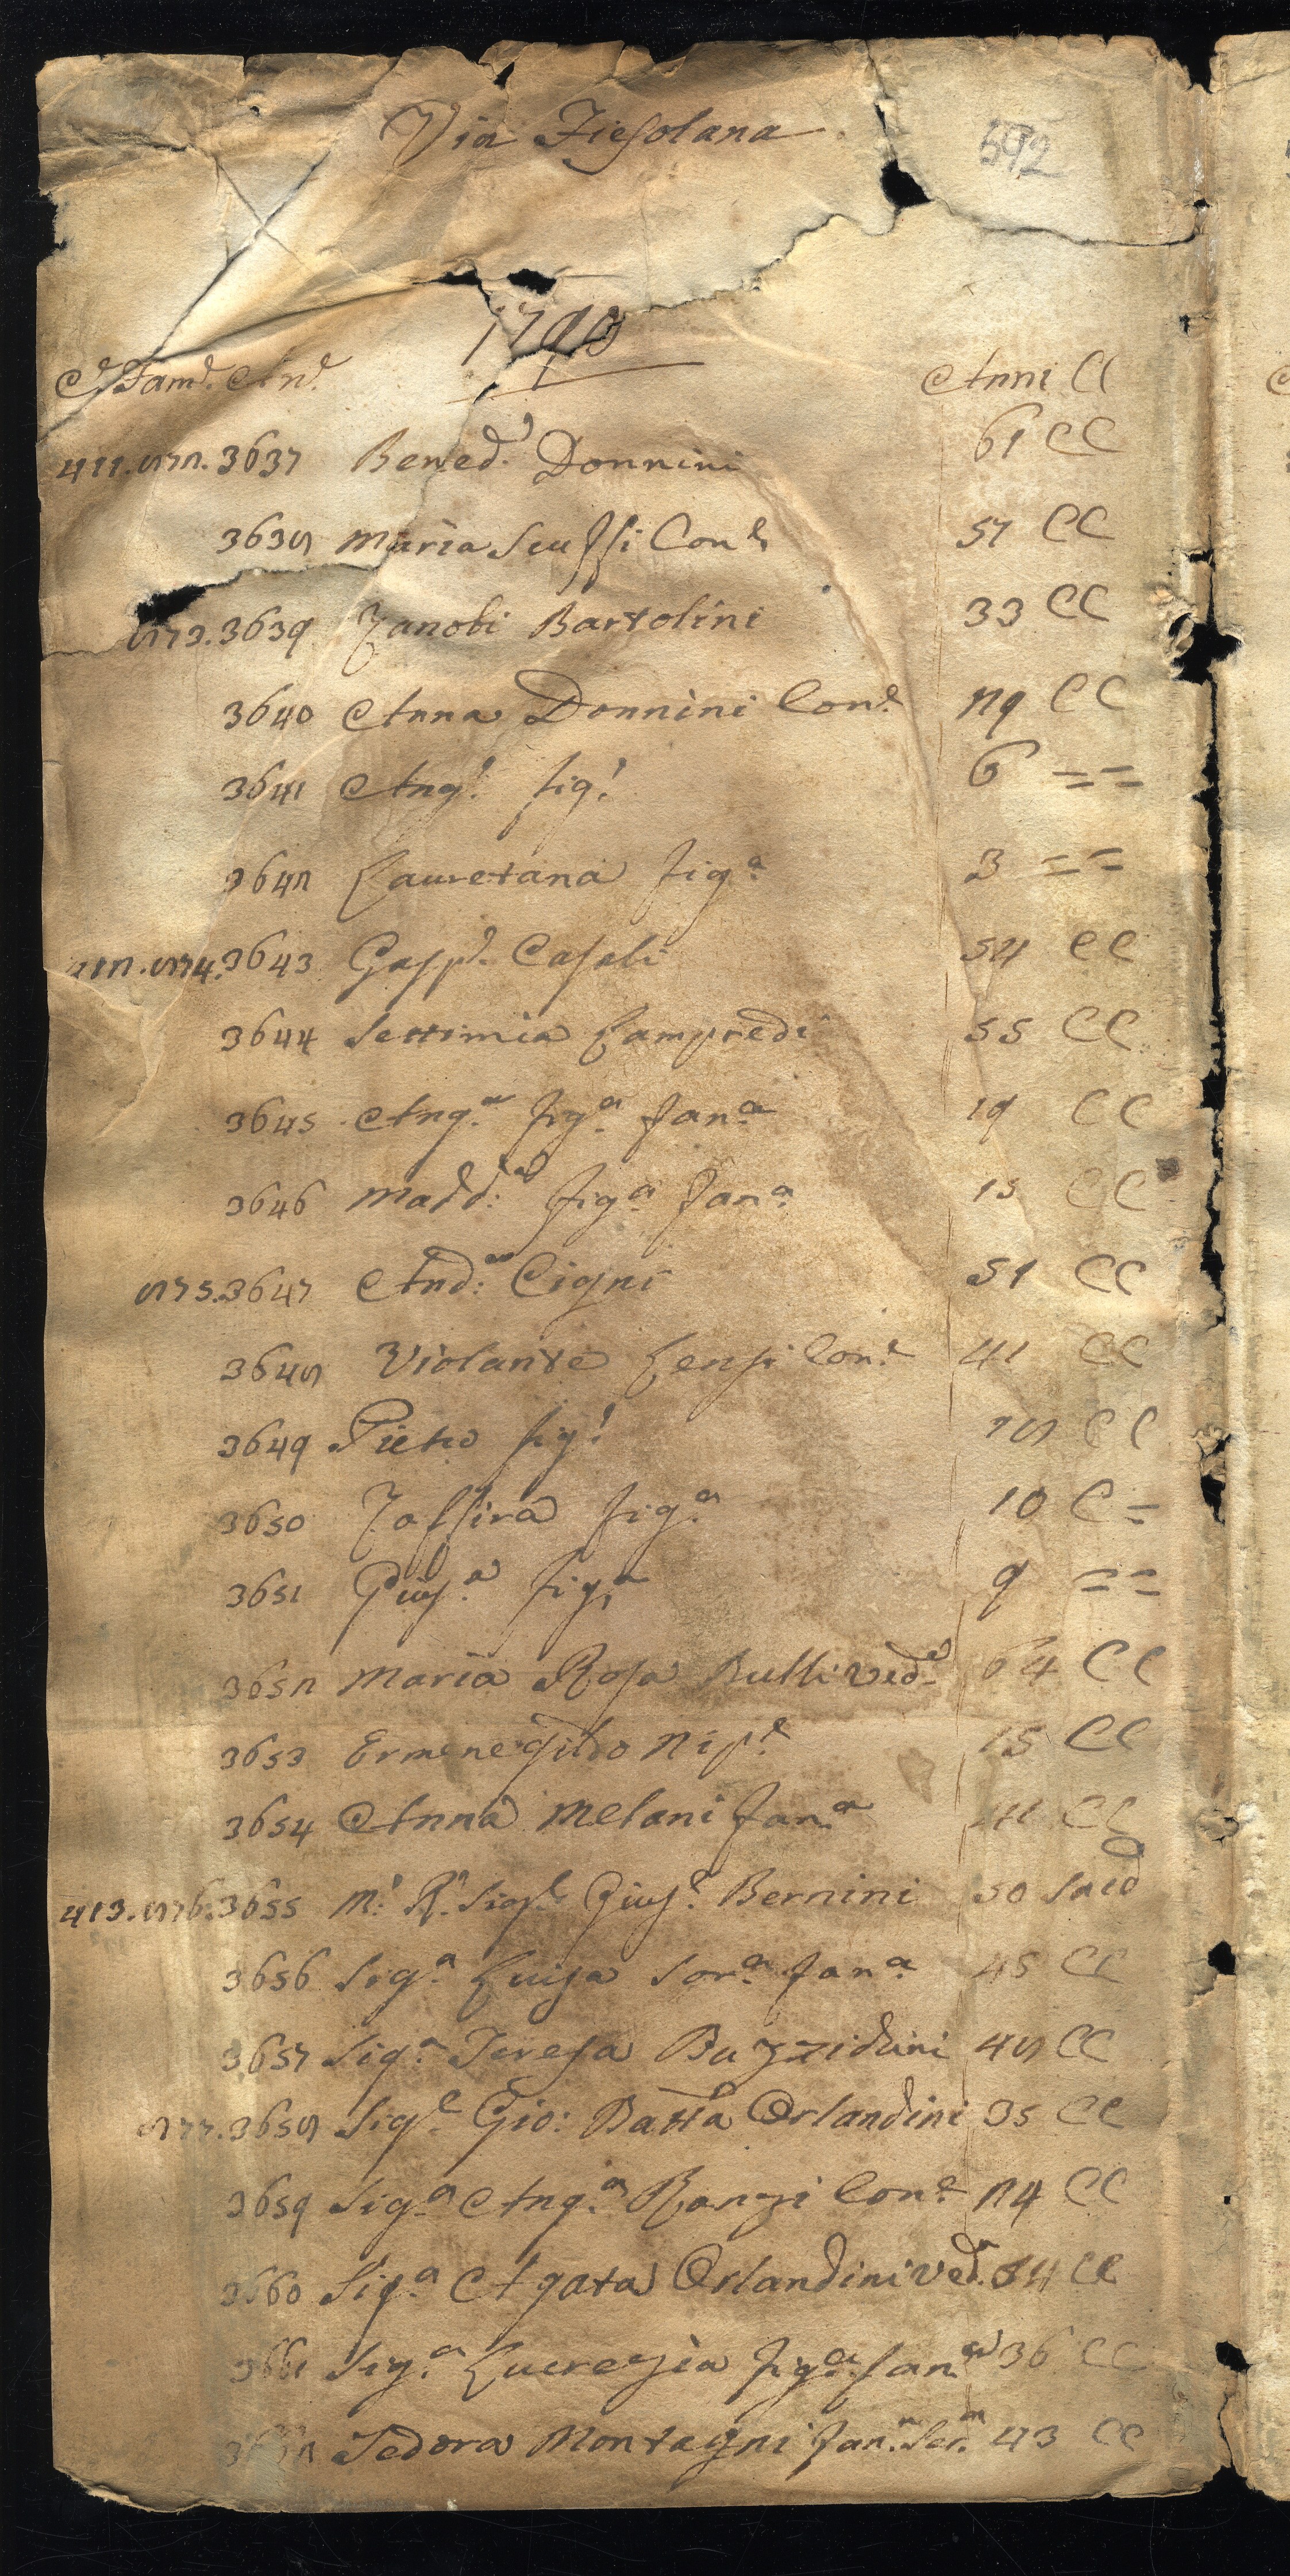 Via Fiesolana
592
1790
Ce. Fame. Ane. Anni CC
411. 872. 3637 Bened.o Donnini 61 CC
3638 Maria Scuffi Con.e 57 CC
873. 3639 Zanobi Bartolini 33 CC
3640 Anna Donnini Con.e 29 CC
3641 Ang.l fig.l 6 = =
3642 Lauretana fig.a 3 = =
412. 874. 3643 Gasp.e Casali 54 CC
3644 Settimia Lampredi 55 CC
3645 Ang.a fig.a fan.a 19 CC
3646 Madd:a fig.a fan.a 15 CC
875. 3647 And:a Cigni 51 CC
3648 Violante Lensi Con.e 41 CC
3649 Pietro fig.l 18 CC
3650 Zaffira fig.a 10 C =
3651 Gius.a fig.a 9 = =
3652 Maria Rosa Bulli ved.a 64 CC
3653 Ermenegildo Nip.e 15 CC
3654 Anna Melani fan.a 41 CC
413. 876. 3655 M.o R.o Sig.e Gius.e Bernini 50 Sacd
3656 Sig.a Luisa Sor.a fan.a 45 CC
3657 Sig.a Teresa Buzzidini 48 CC
877. 3658 Sig.e Gio: Batta Orlandini 35 CC
3659 Sig.a Ang.a Ranzi Con.e 24 CC
3660 Sig.a Agata Orlandini ved.a 64 CC
3661 Sig.a Lucrezia fig.a fan.a 36 CC
3662 Tedora Montagni fan.a Ser.a 43 CC